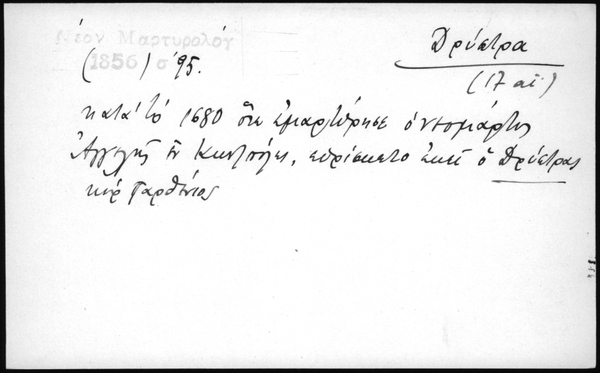 Νέον Μαρτυρολόγ
(1856) σ 95.
Δρύστρα
(17 αἰ.)
κατὰ τὸ 1680 ὅτε ἐμαρτύρησε ὁ νεομάρτυς
Ἀγγελῆς ἐν Κωνπόλει, εὑρίσκετο ἐκεῖ ὁ Δρύστρας
κὺρ Παρθένιος